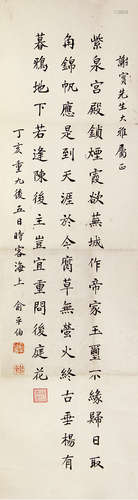 先生大雅屬正
紫泉宮殿鎖煙霞欲蕪城作帝家玉璽不緣歸日取
角錦帆應是到天涯於今腐草無螢火終古垂楊有
暮鴉地下若逢陳後主豈宜重問後庭花
丁亥重九後五日時客海上 俞